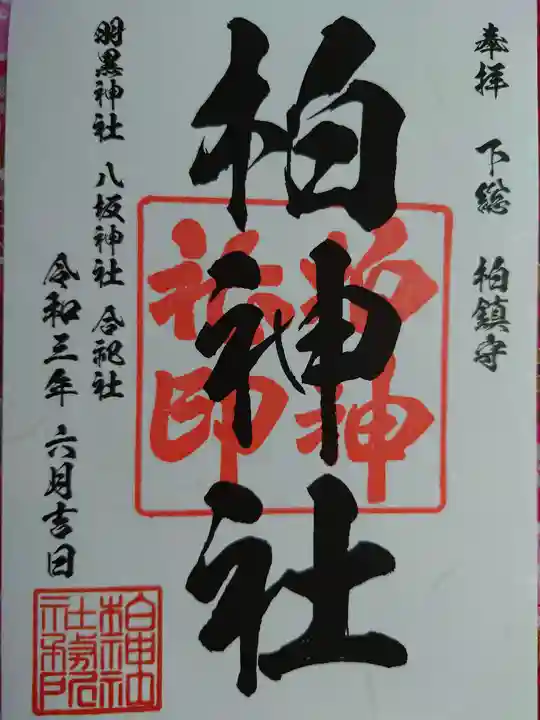 奉拝 下総 柏鎮守
柏神社
柏神
社印
羽黒神社 八坂神社 合祀社
令和三年 六月吉日
柏神社
社務所